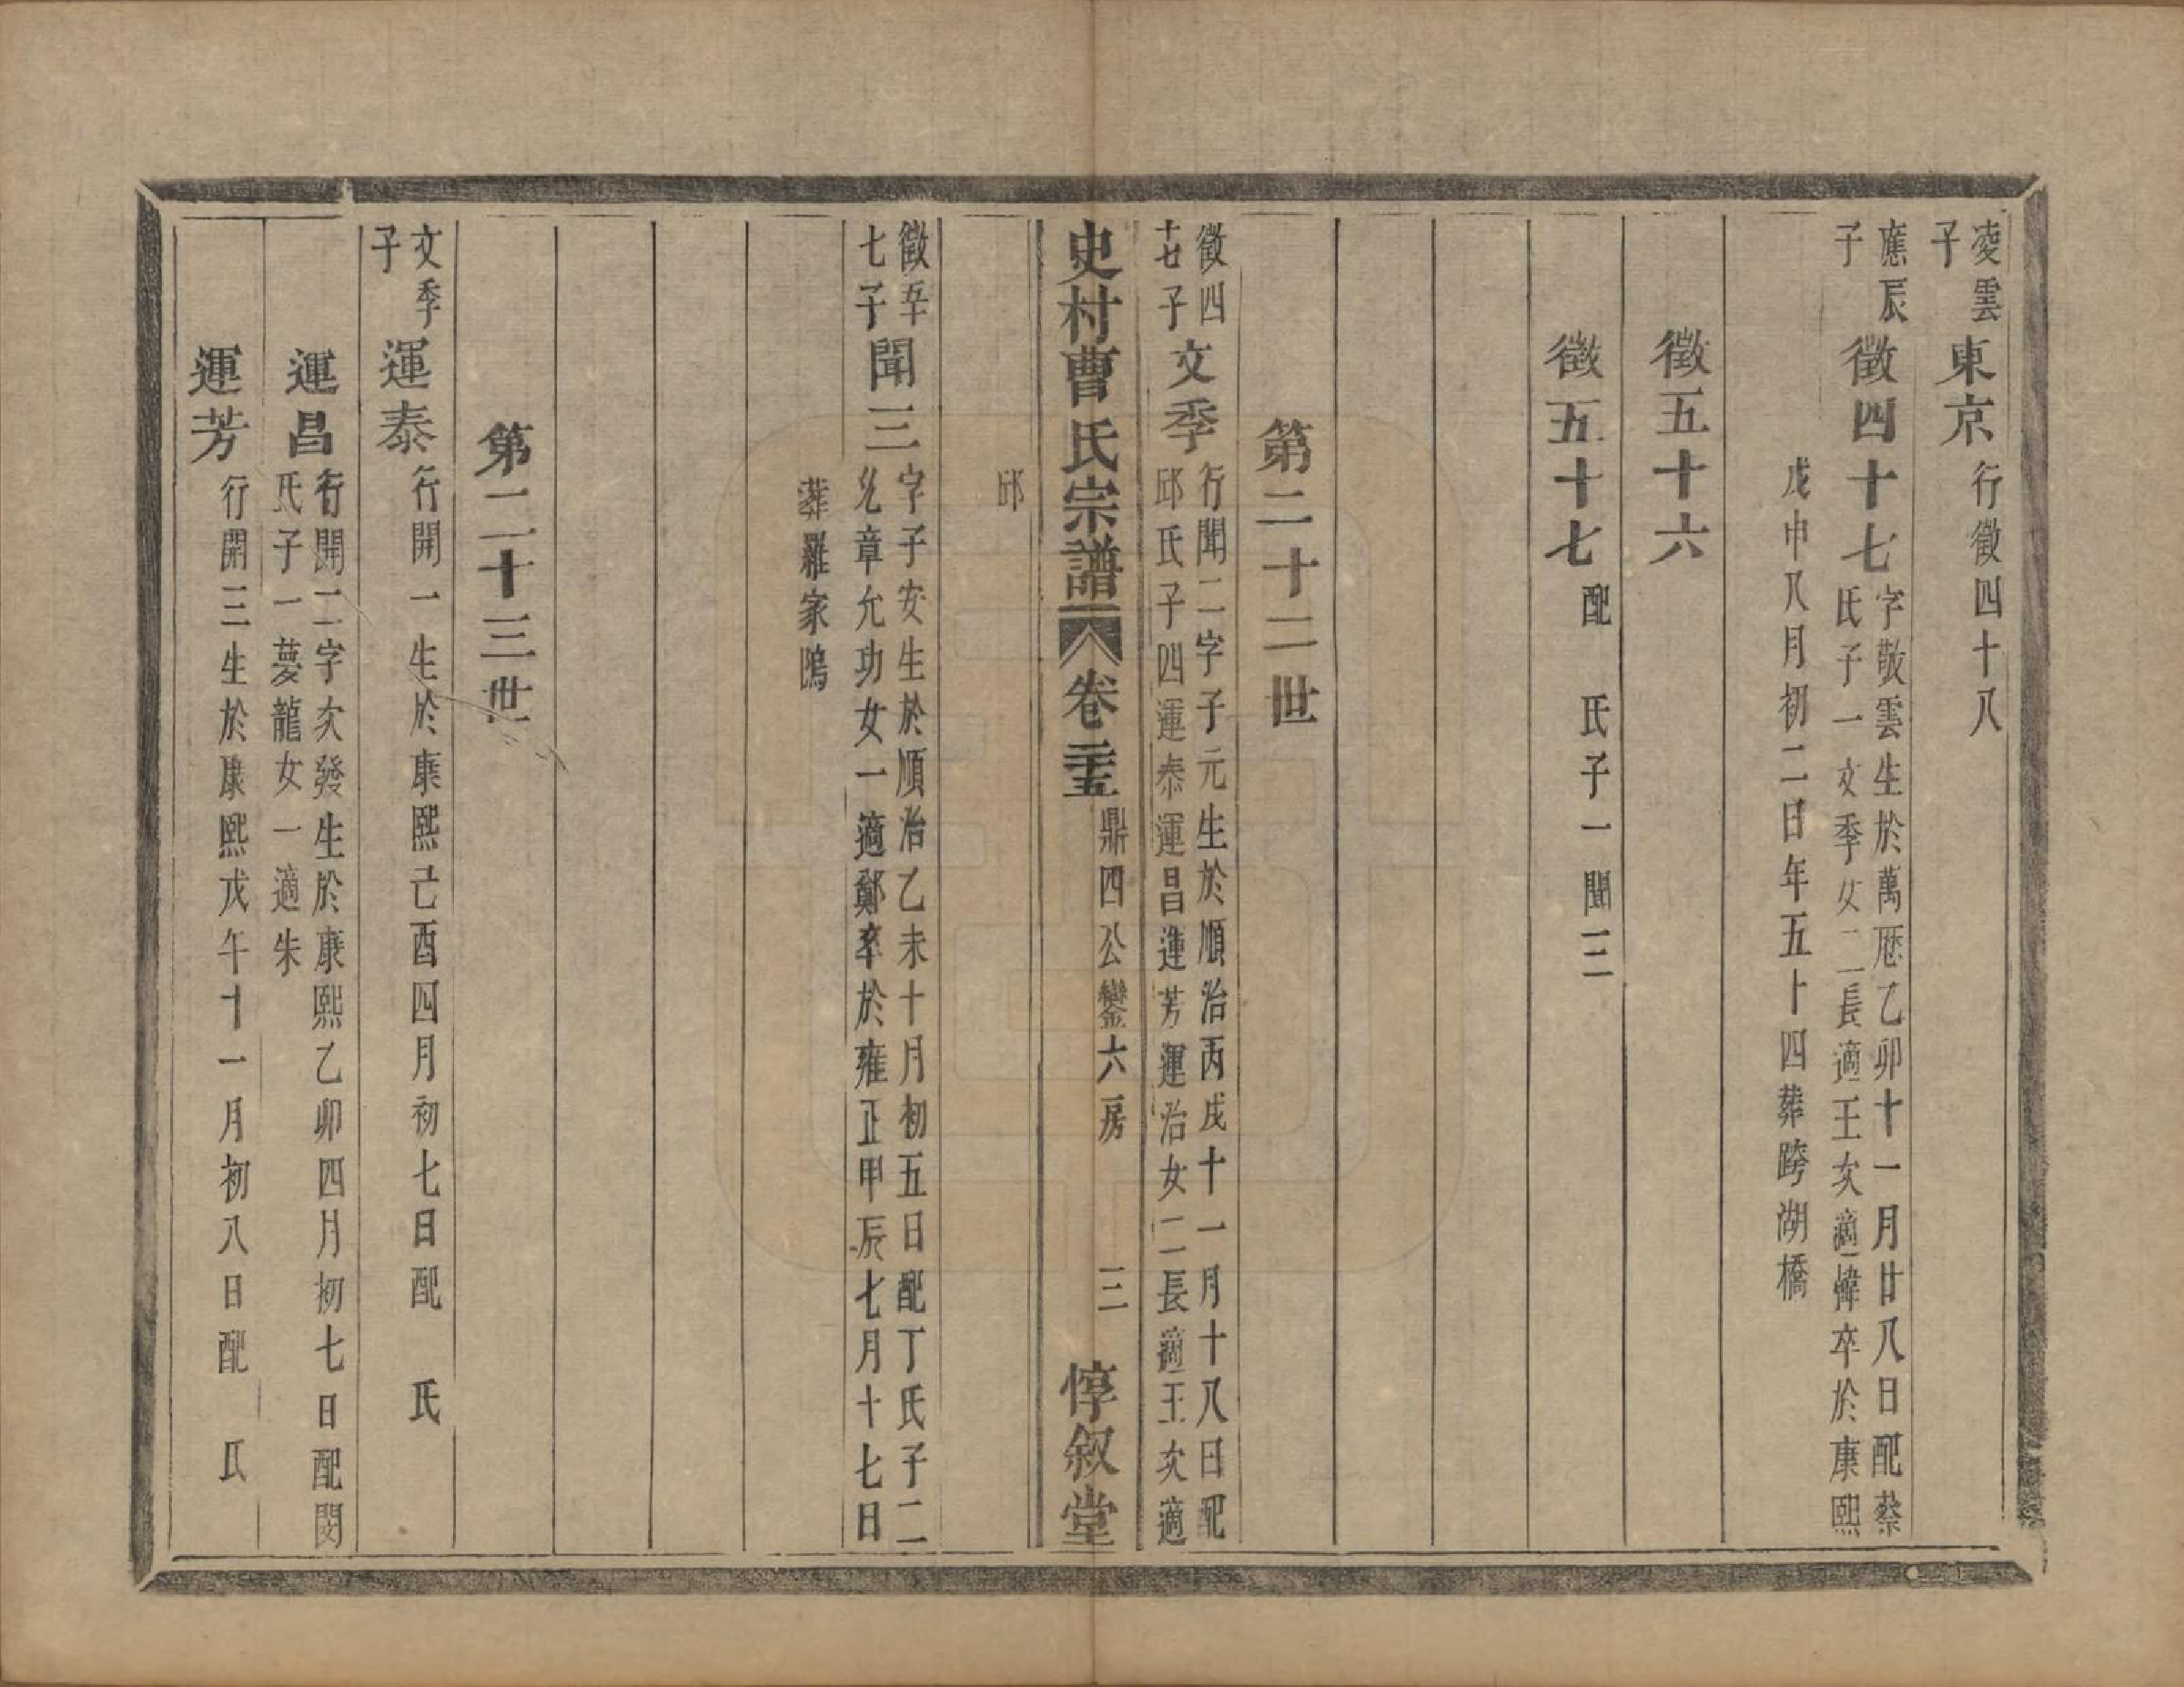 凌雲子 東京 行徵四十八
應辰子 徵四十七 字敬雲生於萬厯乙卯十一月廿八日配蔡
氏子一文季女二長適王次適幃卒於康熙
戊申八月初二日年五十四葬跨湖橋
徵五十六
徵五十七 配 氏子一聞三
第二十二世
徵四十七子 文季 行聞二字子元生於順治丙戌十一月十八日配
邱氏子四運泰運昌運芳運治女二長適王次適
史村曹氏宗譜 卷二十五 鼎四公鑾六房 三 惇叙堂
邱
徵五十七子 聞三 字子安生於順治乙未十月初五日配丁氏子二
允章允功女一適鄭卒於雍正甲辰七月十七日
葬羅家鴫
第二十三世
文季子 運泰 行開一生於康熙己酉四月初七日配 氏
運昌 行開二字次發生於康熙乙卯四月初七日配閔
氏子一夢龍女一適朱
運芳 行開三生於康熙戊午十一月初八日配 氏